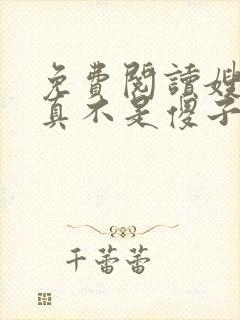 免費閱讀嫂
真不是傻子
千蕾蕾